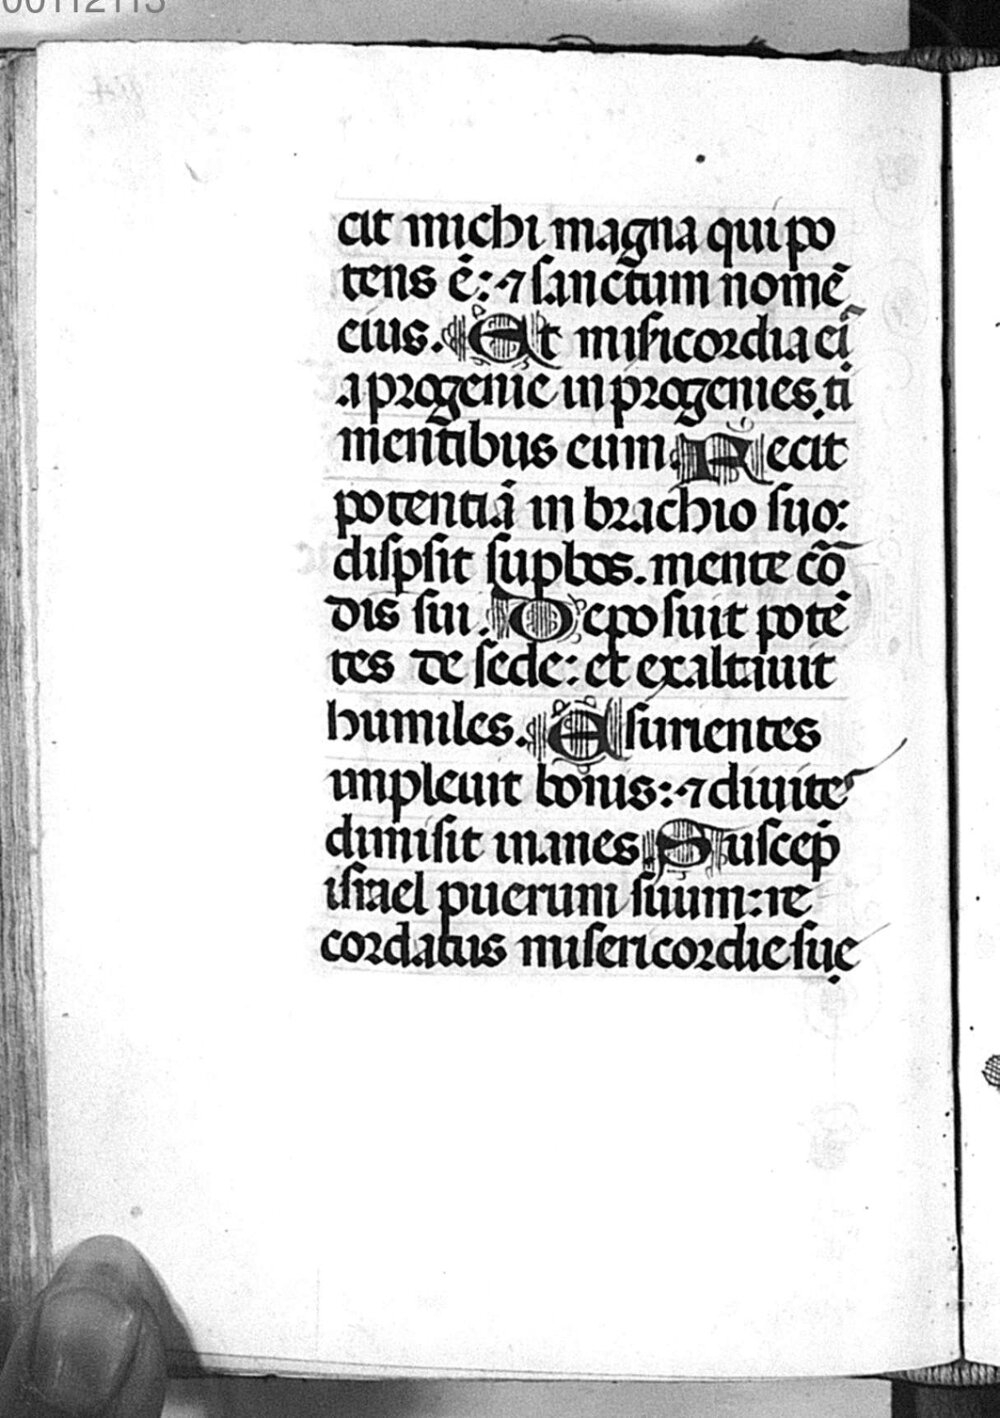 00112113
cit michi magna qui po
tens ē: ⁊ sanctum nomē
eius. Et misericordia ei᷒
a progenie in progenies. ti
mentibus eum. Fecit
potentiā in brachio suo:
dispsit supbos. mente cō
dis sui. Deposuit potē
tes de sede: et exaltauit
humiles. Esurientes
impleuit bonis: ⁊ diuites
dimisit inanes. Suscep̄
israel puerum suum: re
cordatus misericordie sue